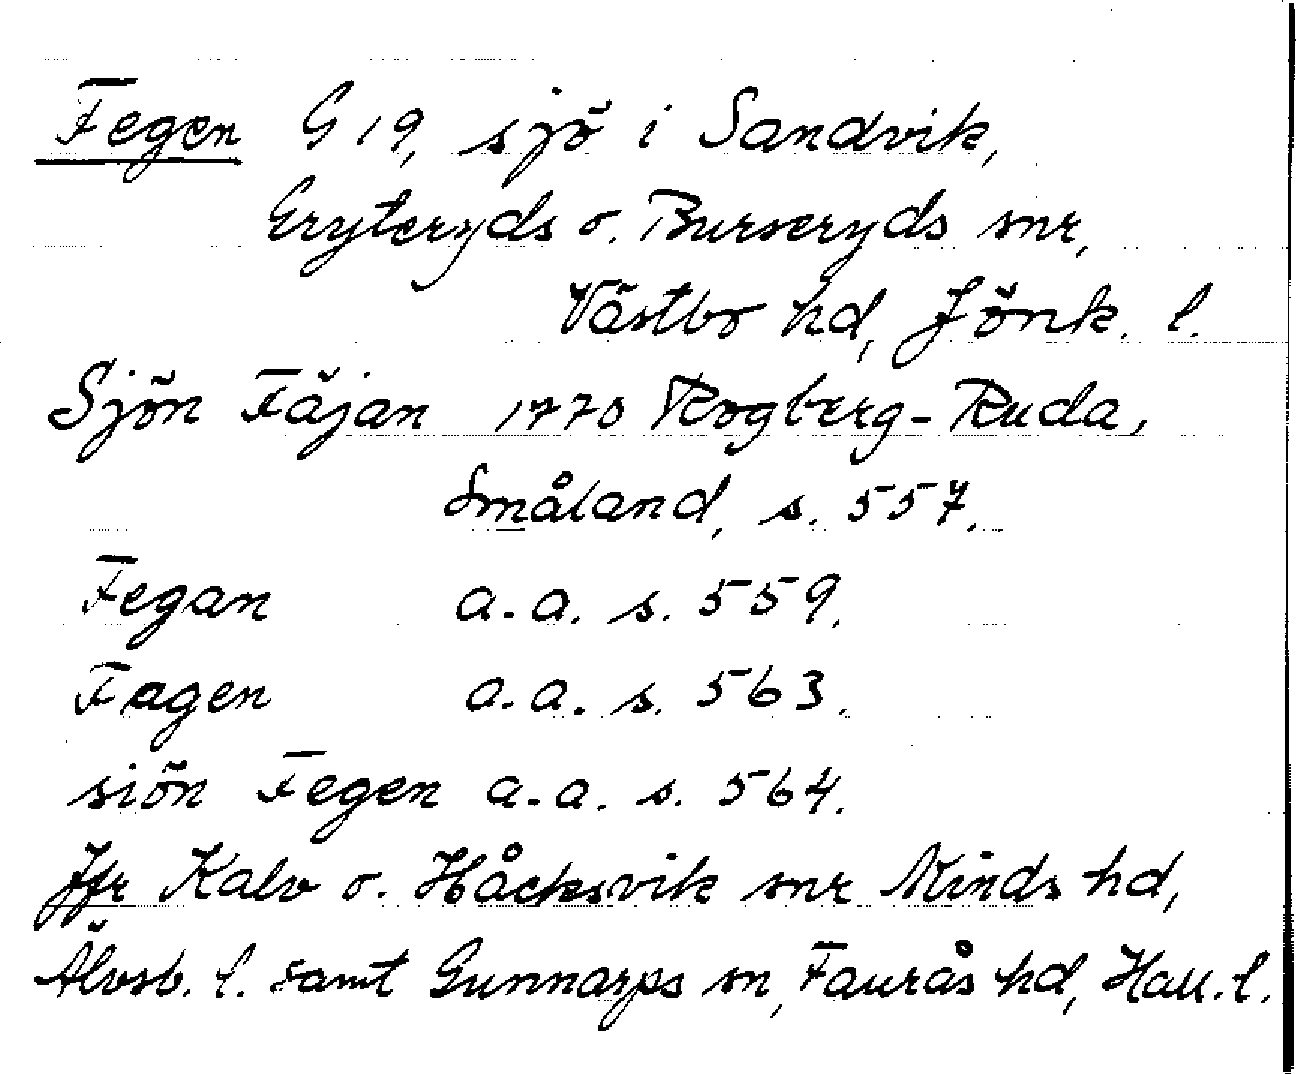 Fegen G 19, sjö i Sandvik,
Gryteryds o. Burseryds snr,
Västbo hd, Jönk. l.
Sjön Fäjan 1770 Rogberg-Ruda,
Småland, s. 557.
Fegan a.a. s. 559.
Fagen a.a. s. 563.
siön Fegen a.a. s. 564.
Jfr Kalv o. Håcksvik snr Kinds hd,
Älvsb. l. samt Gunnarps sn, Faurås hd, Hall. l.